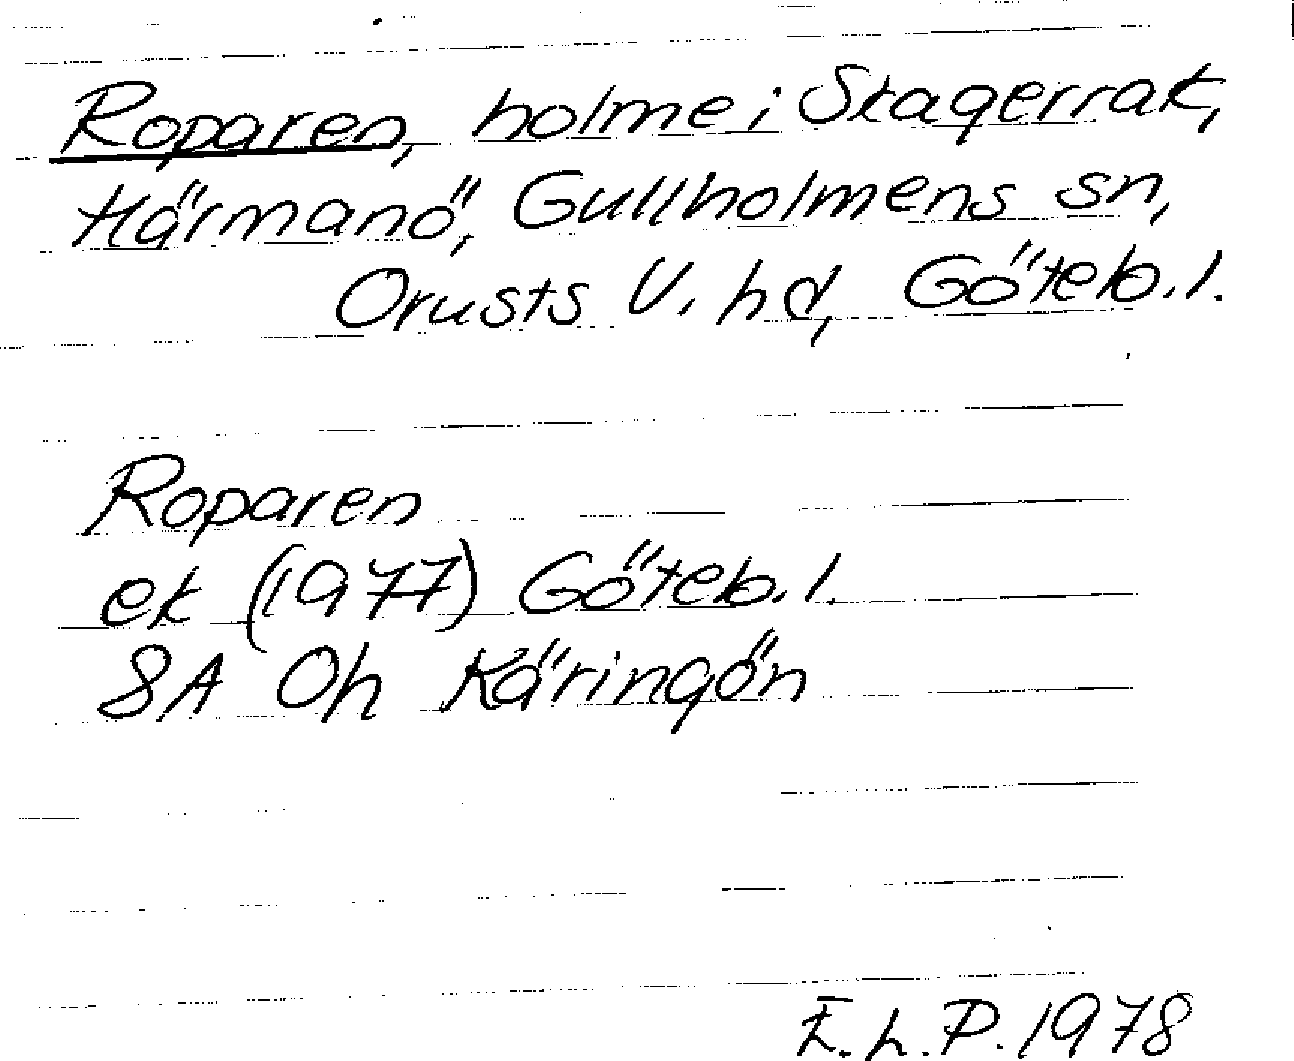 Roparen, holme i Skagerrak,
Härmanö, Gullholmens sn,
Orusts V. hd, Göteb. l.
Roparen
ek (1977) Göteb. l.
8A Oh Käringön
E. L. P. 1978